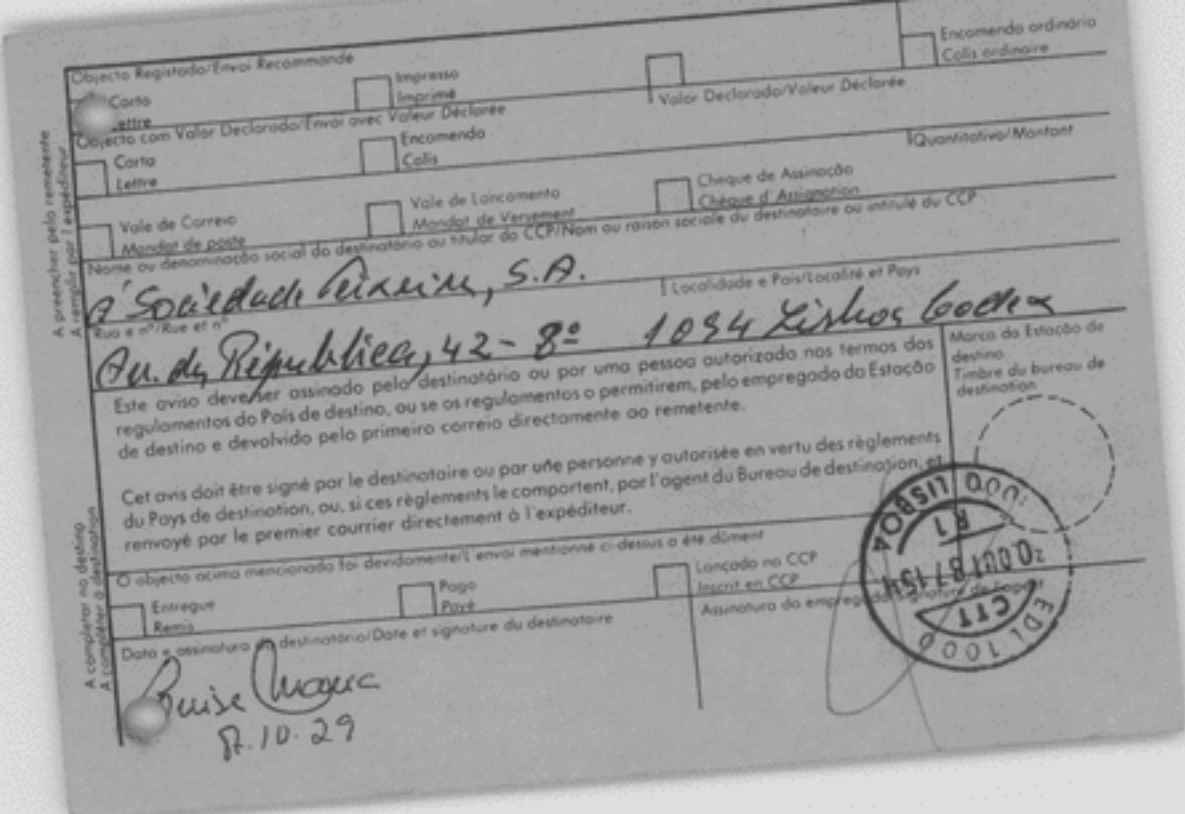 Objecto Registado/Envoi Recommandé
Carta
Lettre
Impresso
Imprimé
Encomenda ordinária
Colis ordinaire
Valor Declarado/Valeur Déclarée
Objecto com Valor Declarado/Envoi avec Valeur Déclarée
Carta
Lettre
Encomenda
Colis
Quantitativo/Montant
Vale de Correio
Mandat de poste
Vale de Lancamento
Mandat de Versement
Cheque de Assinação
Chèque d'Assignation
Nome ou denominação social do destinatário ou titular da CCP/Nom ou raison sociale du destinataire ou intitulé du CCP
À Sociedade, S.A.
Rua e nº/Rue et nº
Localidade e País/Localité et Pays
Av. da República, 42 - 8º 1094 Lisboa Codex
Este aviso deve ser assinado pelo destinatário ou por uma pessoa autorizada nos termos dos
regulamentos do País de destino, ou se os regulamentos o permitirem, pelo empregado da Estação
de destino e devolvido pelo primeiro correio directamente ao remetente.
Cet avis doit être signé par le destinataire ou par une personne y autorisée en vertu des règlements
du Pays de destination, ou, si ces règlements le comportent, par l'agent du Bureau de destination, et
renvoyé par le premier courrier directement à l'expéditeur.
Marca da Estação de
destino
Timbre du bureau de
destination
O objecto acima mencionado foi devidamente/L'envoi mentionné ci-dessus a été dûment
Entregue
Remis
Pago
Payé
Lançado na CCP
Inscrit en CCP
Data e assinatura do destinatário/Date et signature du destinataire
Assinatura do empregado/Signature de l'agent
87.10.29
A preencher pelo remetente
A remplir par l'expéditeur
A completar no destino
A compléter à destination
LISBOA
R 1
CTT
EDL 1000